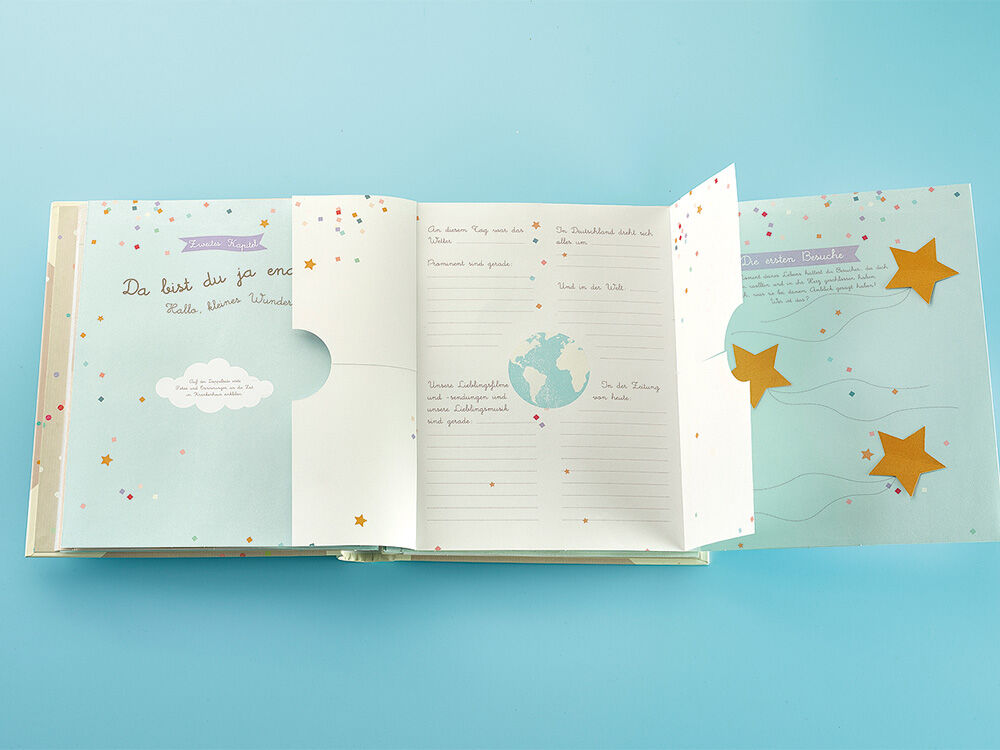 Zweites Kapitel
Da bist du ja end
Hallo, kleines Wunder
Auf der Doppelseite viele
Fotos und Erinnerungen an die Zeit
im Krankenhaus einkleben.
An diesem Tag war das
Wetter
Prominent sind gerade:
Unsere Lieblingsfilme
und -sendungen und
unsere Lieblingsmusik
sind gerade:
In Deutschland dreht sich
alles um
Und in der Welt:
In der Zeitung
von heute:
Die ersten Besuche
deines Lebens hattest du Besucher, die dich
wollten und in ihr Herz geschlossen haben.
was sie bei deinem Anblick gesagt haben!
Wer ist das?